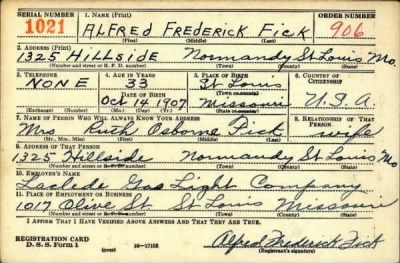 SERIAL NUMBER 1. NAME (Print) ORDER NUMBER
1021 ALFRED FREDERICK FICK 906
(First) (Middle) (Last)
2. ADDRESS (Print)
1325 HILLSIDE Normandy St Louis Mo.
(Number and street or R. F. D. number) (Town) (County) (State)
3. TELEPHONE 4. AGE IN YEARS 5. PLACE OF BIRTH 6. COUNTRY OF CITIZENSHIP
NONE 33 St Louis
DATE OF BIRTH (Town or county)
Oct 14 1907 Missouri U.S.A.
(Exchange) (Number) (Mo.) (Day) (Yr.) (State or country)
7. NAME OF PERSON WHO WILL ALWAYS KNOW YOUR ADDRESS 8. RELATIONSHIP OF THAT PERSON
Mrs Ruth Osborne Fick wife
(Mr., Mrs., Miss) (First) (Middle) (Last)
9. ADDRESS OF THAT PERSON
1325 Hillside Normandy St Louis Mo
(Number and street or R. F. D. number) (Town) (County) (State)
10. EMPLOYER'S NAME
Laclede Gas Light Company
11. PLACE OF EMPLOYMENT OR BUSINESS
1017 Olive St St Louis Missouri
(Number and street or R. F. D. number) (Town) (County) (State)
I AFFIRM THAT I HAVE VERIFIED ABOVE ANSWERS AND THAT THEY ARE TRUE.
REGISTRATION CARD
D. S. S. Form 1 (over) 16—17105 Alfred Frederick Fick
(Registrant's signature)